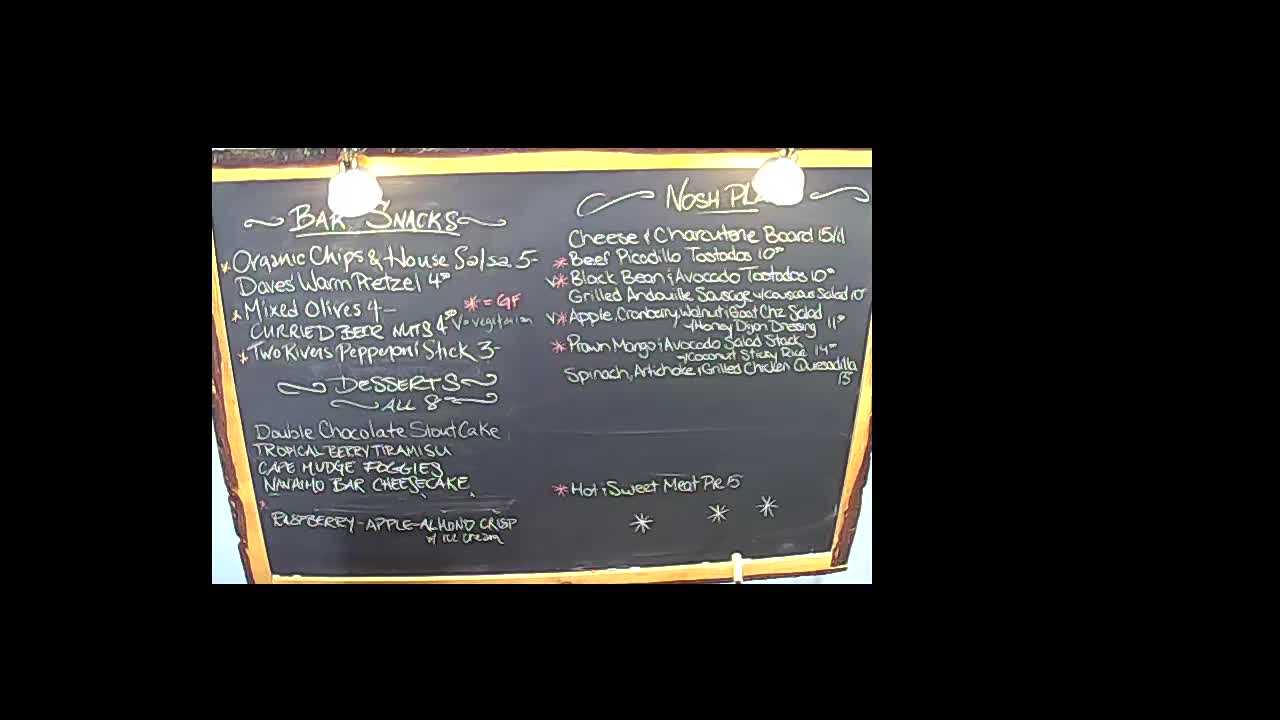 BAR SNACKS
* Organic Chips & House Salsa 5-
Daves Warm Pretzel 4⁵⁰
* Mixed Olives 4-
* = GF
CURRIED BEER NUTS 4⁵⁰
V = vegetarian
* Two Rivers Pepperoni Stick 3-
DESSERTS
ALL 8
Double Chocolate Stout Cake
TROPICAL BERRY TIRAMISU
CAPE MUDGE FOGGIES
NANAIMO BAR CHEESECAKE
RASPBERRY-APPLE-ALMOND CRISP
w/ ICE Cream
NOSH
Cheese & Charcuterie Board 15/
* Beef Picadillo Tostadas 10
V* Black Bean & Avocado Tostadas 10
Grilled Andouille Sausage w/ couscous Salad
V* Apple, Cranberry, Walnut & Goat Chz Salad
w/ Honey Dijon Dressing 11
* Prawn Mango & Avocado Salad Stack
w/ Coconut Sticky Rice 14
Spinach, Artichoke & Grilled Chicken Quesadilla
13
* Hot & Sweet Meat Pie 5